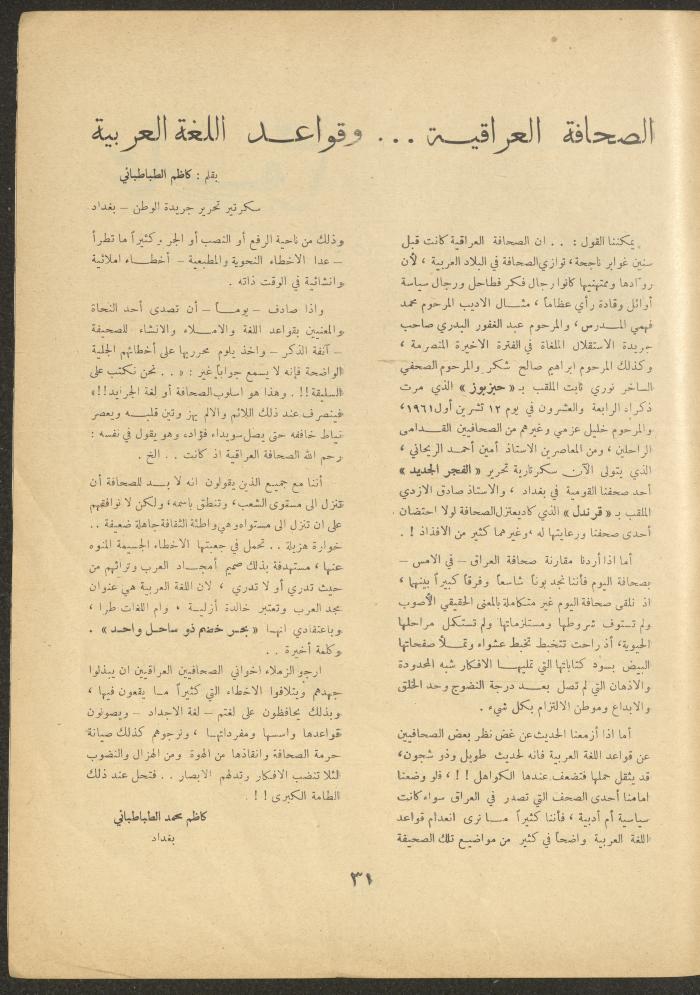 الصحافة العراقية ... وقواعد اللغة العربية
بقلم : كاظم الطباطبائي
سكرتير تحرير جريدة الوطن – بغداد
يمكننا القول : . . ان الصحافة العراقية كانت قبل
سنين غوابر ناجحة ، توازي الصحافة في البلاد العربية ، لأن
روادها وممتهنيها كانوا رجال فكر فطاحل ورجال سياسة
أوائل وقادة رأي عظاماً ، مثال الاديب المرحوم محمد
فهمي المدرس ، والمرحوم عبد الغفور البدري صاحب
جريدة الاستقلال الملغاة في الفترة الاخيرة المنصرمة ،
وكذلك المرحوم ابراهيم صالح شكر والمرحوم الصحفي
الساخر نوري ثابت الملقب بـ « حبزبوز » الذي مرت
ذكراه الرابعة والعشرون في يوم ١٢ تشرين أول ١٩٦١،
والمرحوم خليل عزمي وغيرهم من الصحافيين القدامى
الراحلين ، ومن المعاصرين الاستاذ أمين أحمد الريحاني ،
الذي يتولى الآن سكرتارية تحرير « الفجر الجديد »
أحد صحفنا القومية في بغداد ، والاستاذ صادق الازدي
الملقب بـ « قرندل » الذي كاد يعتزل الصحافة لولا احتضان
أحدى صحفنا ورعايتها له ، وغيرهما كثير من الافذاذ ! .
أما اذا أردنا مقارنة صحافة العراق – في الامس –
بصحافة اليوم فأننا نجد بوناً شاسعاً وفرقاً كبيراً بينها ،
اذ نلقى صحافة اليوم غير متكاملة بالمعنى الحقيقي الأصوب
ولم تستوف شروطها ومستلزماتها ولم تستكمل مراحلها
الحيوية، أذ راحت تتخبط تخبط عشواء وتملأ صفحاتها
البيض بسود كتاباتها التي تمليها الافكار شبه المحدودة
والاذهان التي لم تصل بعد درجة النضوج وحد الخلق
والابداع وموطن الالتزام بكل شيء .
أما اذا أزمعنا الحديث عن غض نظر بعض الصحافيين
عن قواعد اللغة العربية فانه لحديث طويل وذو شجون،
قد يثقل حملها فتضعف عندها الكواهل ! ! ، فلو وضعنا
امامنا أحدى الصحف التي تصدر في العراق سواء كانت
سياسية أم أدبية ، فأننا كثيراً ما نرى انعدام قواعد
اللغة العربية واضحاً في كثير من مواضيع تلك الصحيفة
وذلك من ناحية الرفع أو النصب أو الجر وكثيراً ما تطرأ
– عدا الاخطاء النحوية والمطبعية – أخطاء املائية
وانشائية في الوقت ذاته .
واذا صادف – يوماً – أن تصدى أحد النحاة
والمعنيين بقواعد اللغة والاملاء والانشاء للصحيفة
– آنفة الذكر – واخذ يلوم محرريها على أخطائهم الجلية
الواضحة فإنه لا يسمع جواباً غير : « . . نحن نكتب على
السليقة !! . وهذا هو اسلوب الصحافة أو لغة الجرايد !! »
فينصرف عند ذلك اللائم والالم يهز وتين قلبه ويعصر
نياط خافقه حتى يصل سويداء فؤاده وهو يقول في نفسه :
رحم الله الصحافة العراقية اذ كانت . . الخ .
أننا مع جميع الذين يقولون انه لا بد للصحافة أن
تتنزل الى مستوى الشعب، وتنطق باسمه، ولكن لا نوافقهم
على ان تنزل الى مستواه وهي واطئة الثقافة جاهلة ضعيفة . .
خوارة هزيلة . . تحمل في جعبتها الاخطاء الجسيمة المنوه
عنها ، مستهدفة بذلك صميم أمجاد العرب وتراثهم من
حيث تدري أو لا تدري ، لان اللغة العربية هي عنوان
مجد العرب وتعتبر خالدة أزلية ، وام اللغات طرا ،
وباعتقادي انها « بحر خضم ذو ساحل واحد » .
وكلمة أخيرة . .
ارجو الزملاء اخواني الصحافيين العراقيين ان يبذلوا
جهدهم ويتلافوا الاخطاء التي كثيراً ما يقعون فيها ،
وبذلك يحافظون على لغتهم – لغة الاجداد – ويصونون
قواعدها واسسها ومفرداتها ، ونرجوهم كذلك صيانة
حرمة الصحافة وانقاذها من الهوة ومن الهزال والنضوب
لئلا تنضب الافكار وتدلهم الابصار . . فتحل عند ذلك
الطامة الكبرى ! ! .
كاظم محمد الطباطبائي
بغداد
٣١